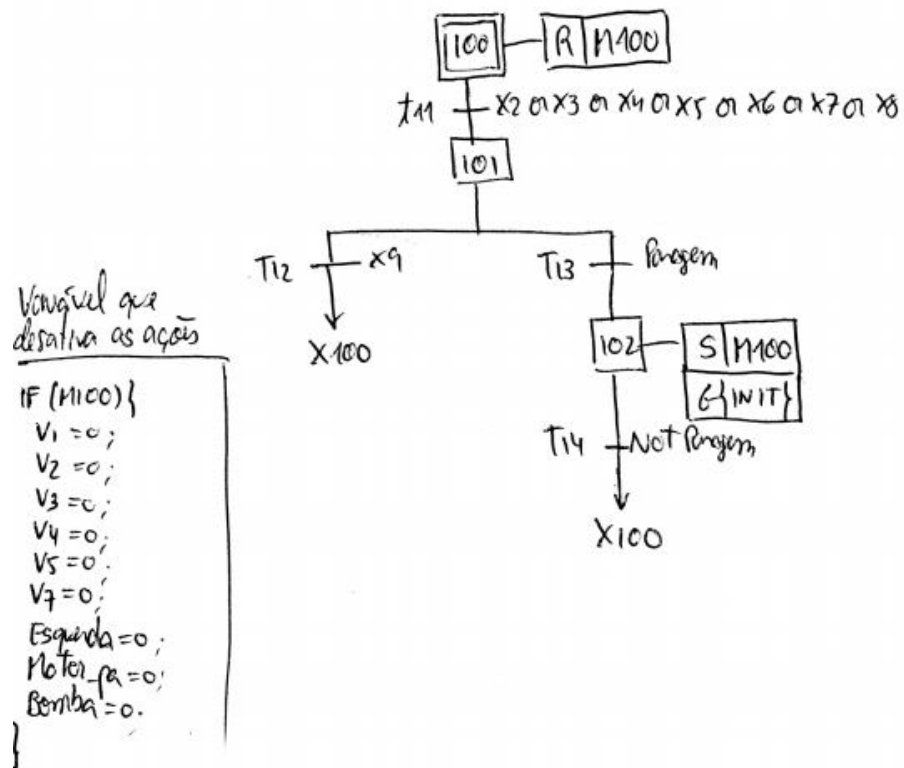 100 R M100
t11 X2 or X3 or X4 or X5 or X6 or X7 or X8
101
T12 X9 T13 Paragem
X100
102 S M100
G{INIT}
T14 Not Paragem
X100
Variável que
desativa as ações
IF (M100){
V1 =0;
V2 =0;
V3 =0;
V4 =0;
V5 =0.
V7 =0;
Esquerda =0;
Motor_pa =0;
Bomba =0.
}